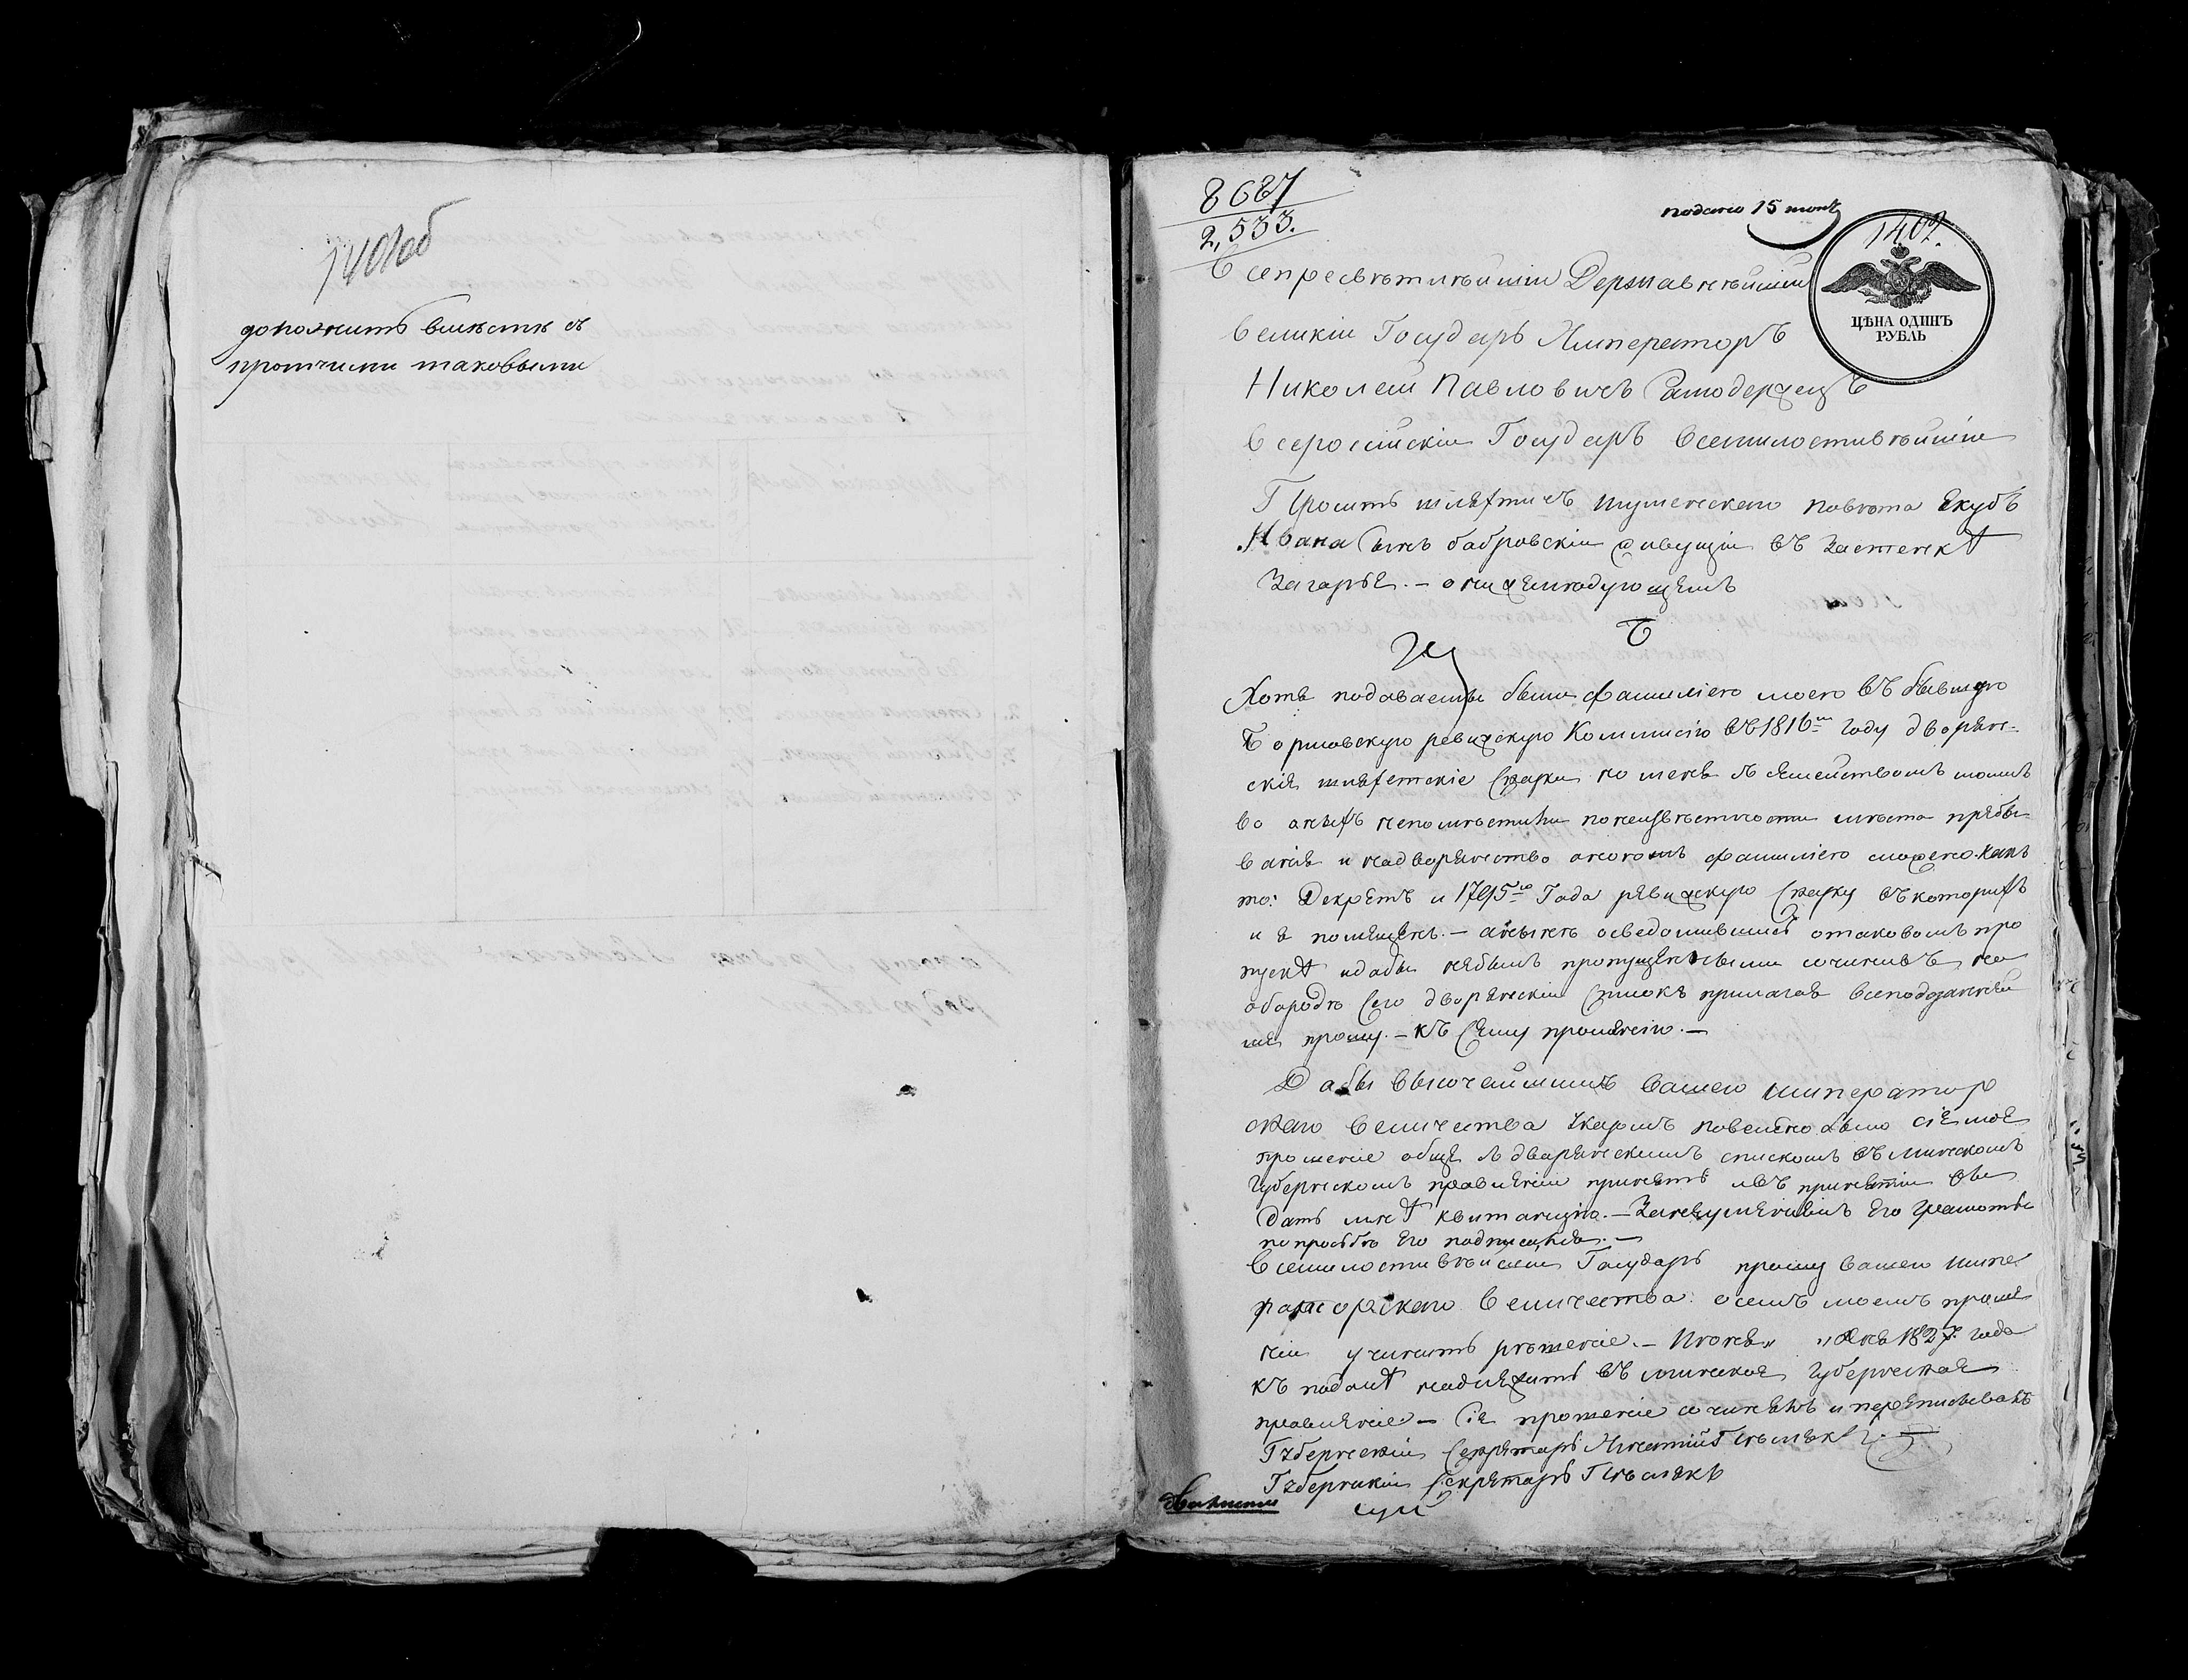 1401об
доложить вместе съ
протчими таковыми
8687
2,533.
подано 15 июня
1402.
ЦѢНА ОДИНЪ
РУБЛЬ
Всепресвѣтлѣйшіи Державнѣйшіи
великіи Государь Императоръ
Николай Павловичъ Самодержецъ
всероссійскіи Государь всемилостивѣйшіи
Проситъ шляхтичъ Игуменскаго повѣта Якубъ
Ивана Сынъ бобровскіи живущіи въ Застенкѣ
Загорье. – о нижеслѣдующемъ
Хотя подаваемы были фамиліею моею въ бывшую
Борисовскую ревизскую Коммисію въ 1816м году дворян-
скія шляхетскіе Сказки но меня съ семействомъ моимъ
во оныхъ непомѣстили понеизвѣстности мѣста пребы-
ванія и на дворянство оногомъ фамиліею сможено. какъ
то: Декретъ и 1795го Года ревизскую Сказку въ которихъ
и я помещенъ. – а нынѣ осведомившись отаковомъ про
пускѣ идабы небылъ пропущеннымъ сочинивъ на
оборотѣ Сего дворянскіи Списокъ прилагая всеподданнѣй
ше прошу. – къ Сему прошенію. –
Дабы высочайшимъ вашего император
скаго величества Указомъ повелѣно было сіе мое
прошеніе обще съ дворянскимъ спискомъ въ минскомъ
Губернскомъ правленіи принять и въ принятіи
дать мнѣ квитанцію. – Занеумѣніемъ Его грамоты
по прозьбѣ Его подписался. –
Всемилостивѣйшіи Государь прошу вашего импе
раторскаго величества о семъ моемъ проше
ніи учинить рѣшеніе. – Июня „ „ дня 1827. года
къ подачѣ надлежитъ въ минское Губернское
правленіе – Сіе прошеніе сочинялъ и переписывалъ
Губернскіи Секретарь
Губернскіи Секретарь